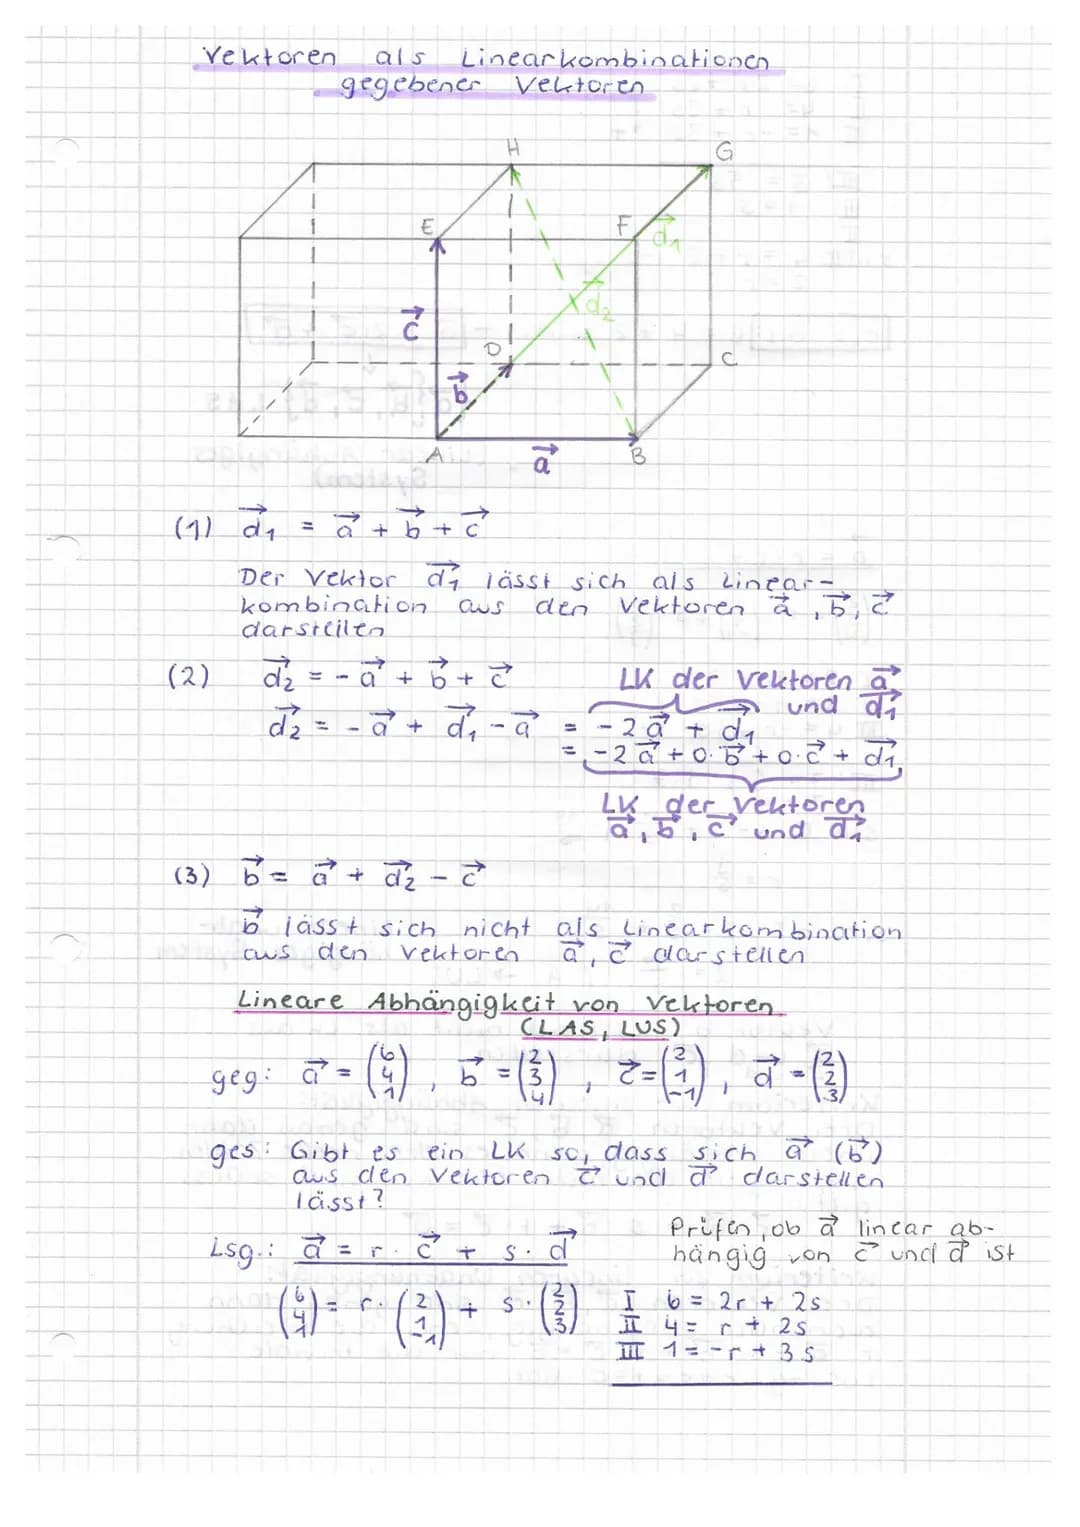 Vektoren als Linearkombinationen
gegebener Vektoren
H
G
E
F
d₁
d₂
c
D
C
b
A
a
B
(1) d₁ = a + b + c
Der Vektor d₁ lässt sich als Linear-
kombination aus den Vektoren a, b, c
darstellen
(2) d₂ = - a + b + c
LK der Vektoren a
und d₁
d₂ = - a + d₁ - a = - 2 a + d₁
= - 2 a + 0 · b + 0 · c + d₁
LK der Vektoren
a, b, c und d₁
(3) b = a + d₂ - c
b lässt sich nicht als Linearkombination
aus den Vektoren a, c darstellen
Lineare Abhängigkeit von Vektoren
(LAS, LUS)
geg: a = (6 4 1), b = (2 3 4), c = (2 1 -1), d = (2 2 3)
ges: Gibt es ein LK so, dass sich a (b)
aus den Vektoren c und d darstellen
lässt?
Prüfen, ob a linear ab-
hängig von c und d ist
Lsg.: a = r · c + s · d
(6 4 1) = r · (2 1 -1) + s · (2 2 3)
I 6 = 2r + 2s
II 4 = r + 2s
III 1 = -r + 3s